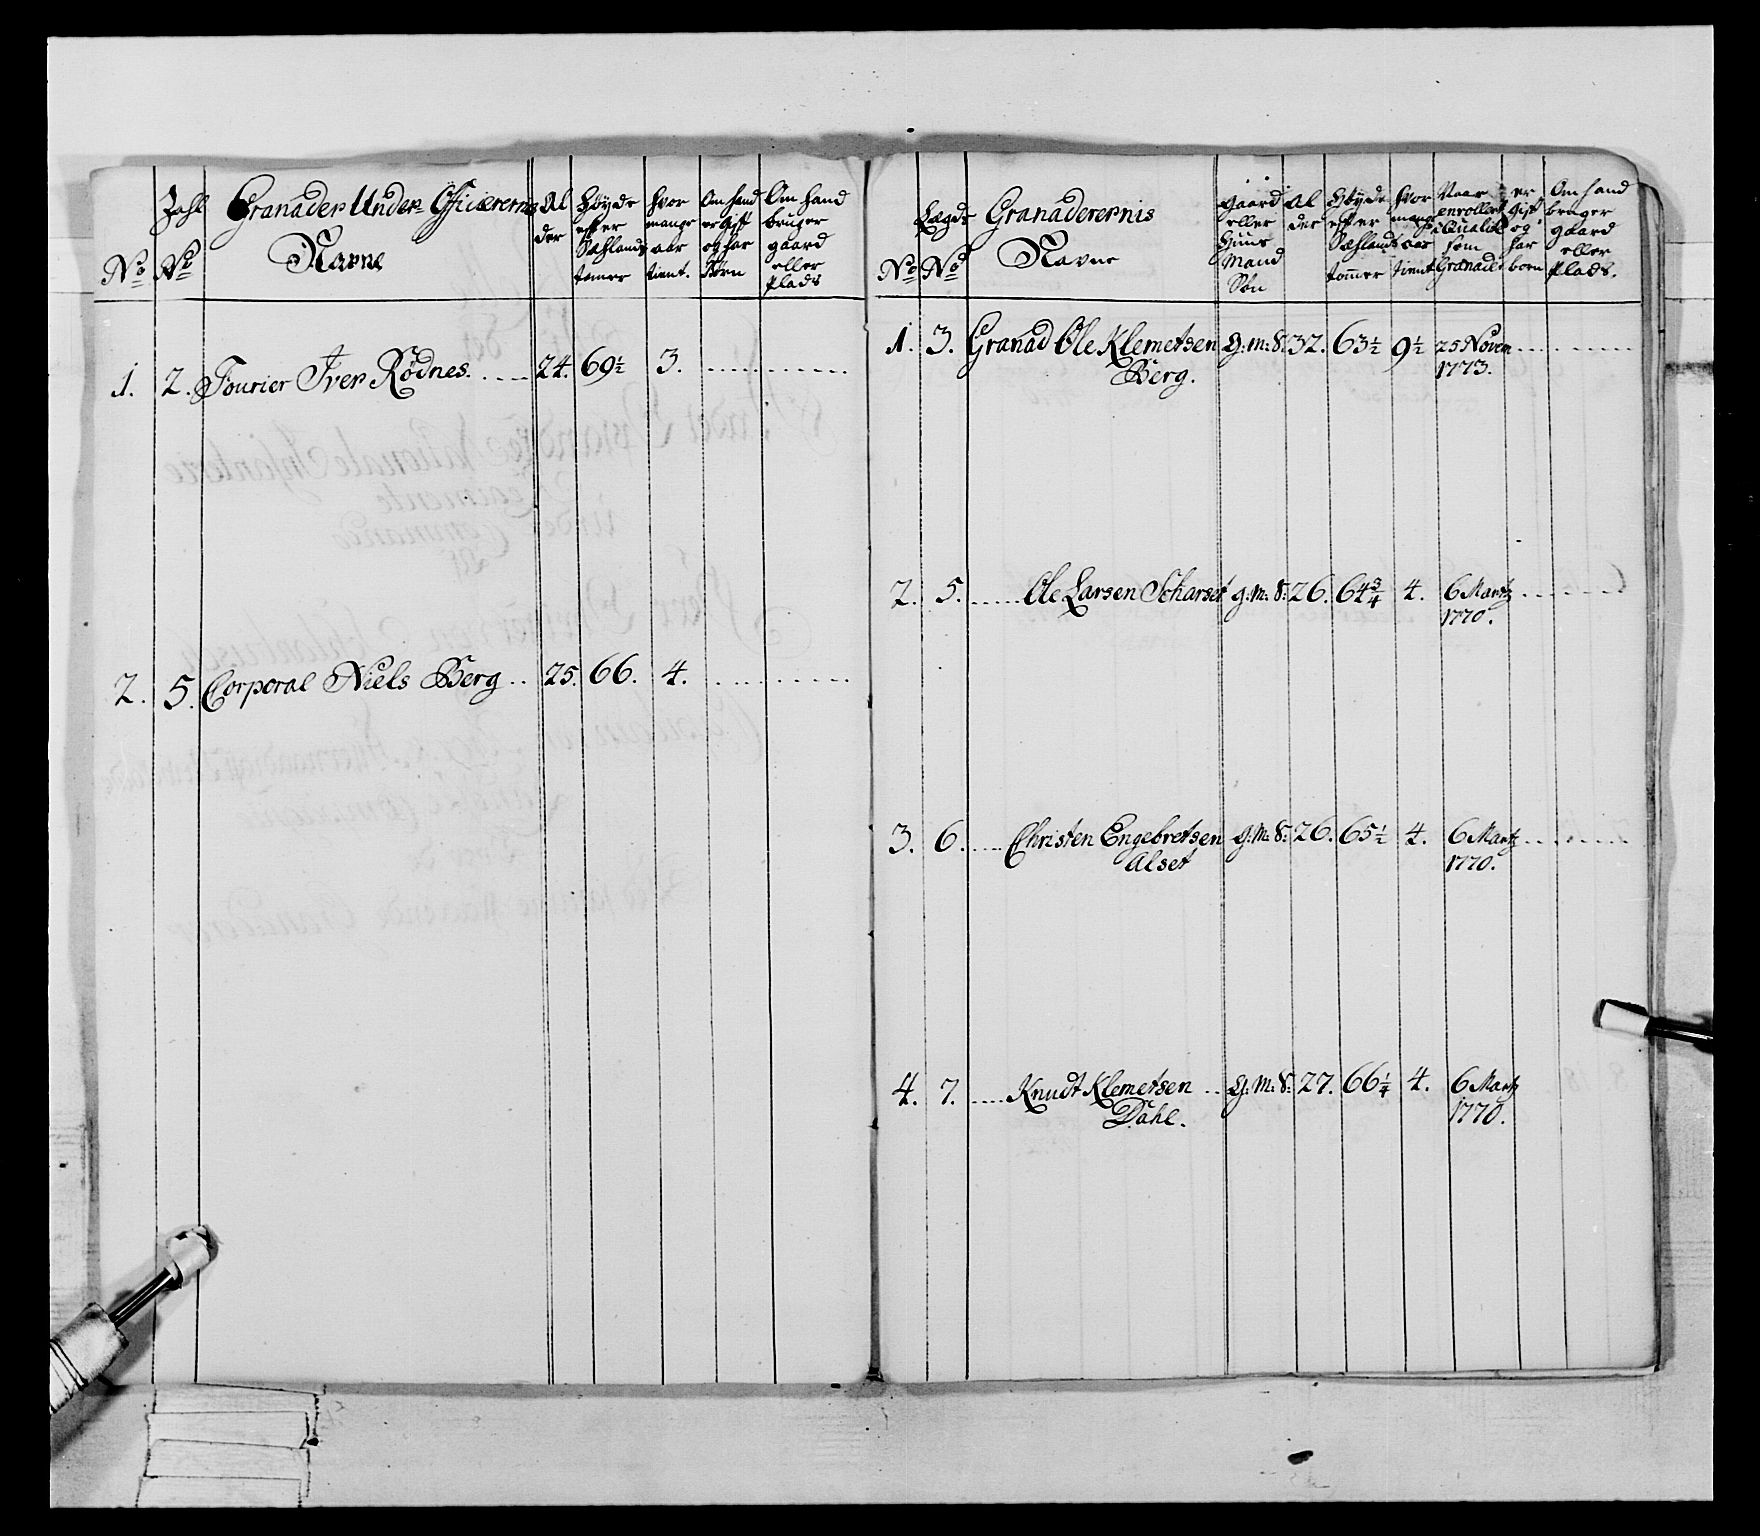 No
Zahl No
Granader Under Officerernes Navne
Al der
Høyde efter Sæhlands tomer
hvor mange aar tient.
Om hand er Gift og har Børn
Om hand bruger gaard eller Plads
1. 2. Fourier Iver Rødnes. 24. 69½ 3.
2. 5. Corporal Niels Berg 25. 66. 4.
No
Lægds No
Granaderernis Navne
gaard eller Huus Mand Søn
Al der
Høyde efter Sæhlands tommer
hvor mange aar tient
Naar enrollert i Qualite som Granader
er Gift og har born
Om hand bruger gaard eller Plads.
1. 3. Granad Ole Klemetsen G: m: S: 32. 63½ 9½ 25 Novem
Berg. 1773.
2. 5. Ole Larsen Scharset g: m: S: 26. 64¾ 4. 6 Martz
1770.
3. 6. Christen Engebretsen g: M: S: 26. 65½ 4. 6 Martz
Alset 1770.
4. 7. Knudt Klemetsen G: M: S: 27. 66¼ 4. 6 Martz
Dahl. 1770.